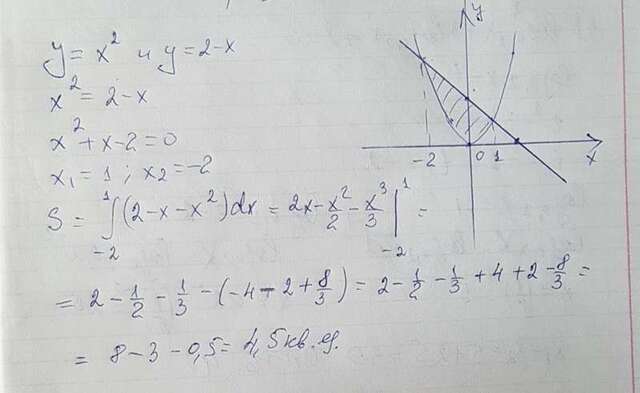 y = x² и y = 2-x
x² = 2-x
x² + x - 2 = 0
x₁ = 1 ; x₂ = -2
S = ∫₋₂¹ (2-x-x²)dx = 2x - x²/2 - x³/3 |₋₂¹ =
= 2 - 1/2 - 1/3 - (-4 - 2 + 8/3) = 2 - 1/2 - 1/3 + 4 + 2 - 8/3 =
= 8 - 3 - 0,5 = 4,5 кв. ед.
y
-2 0 1 x